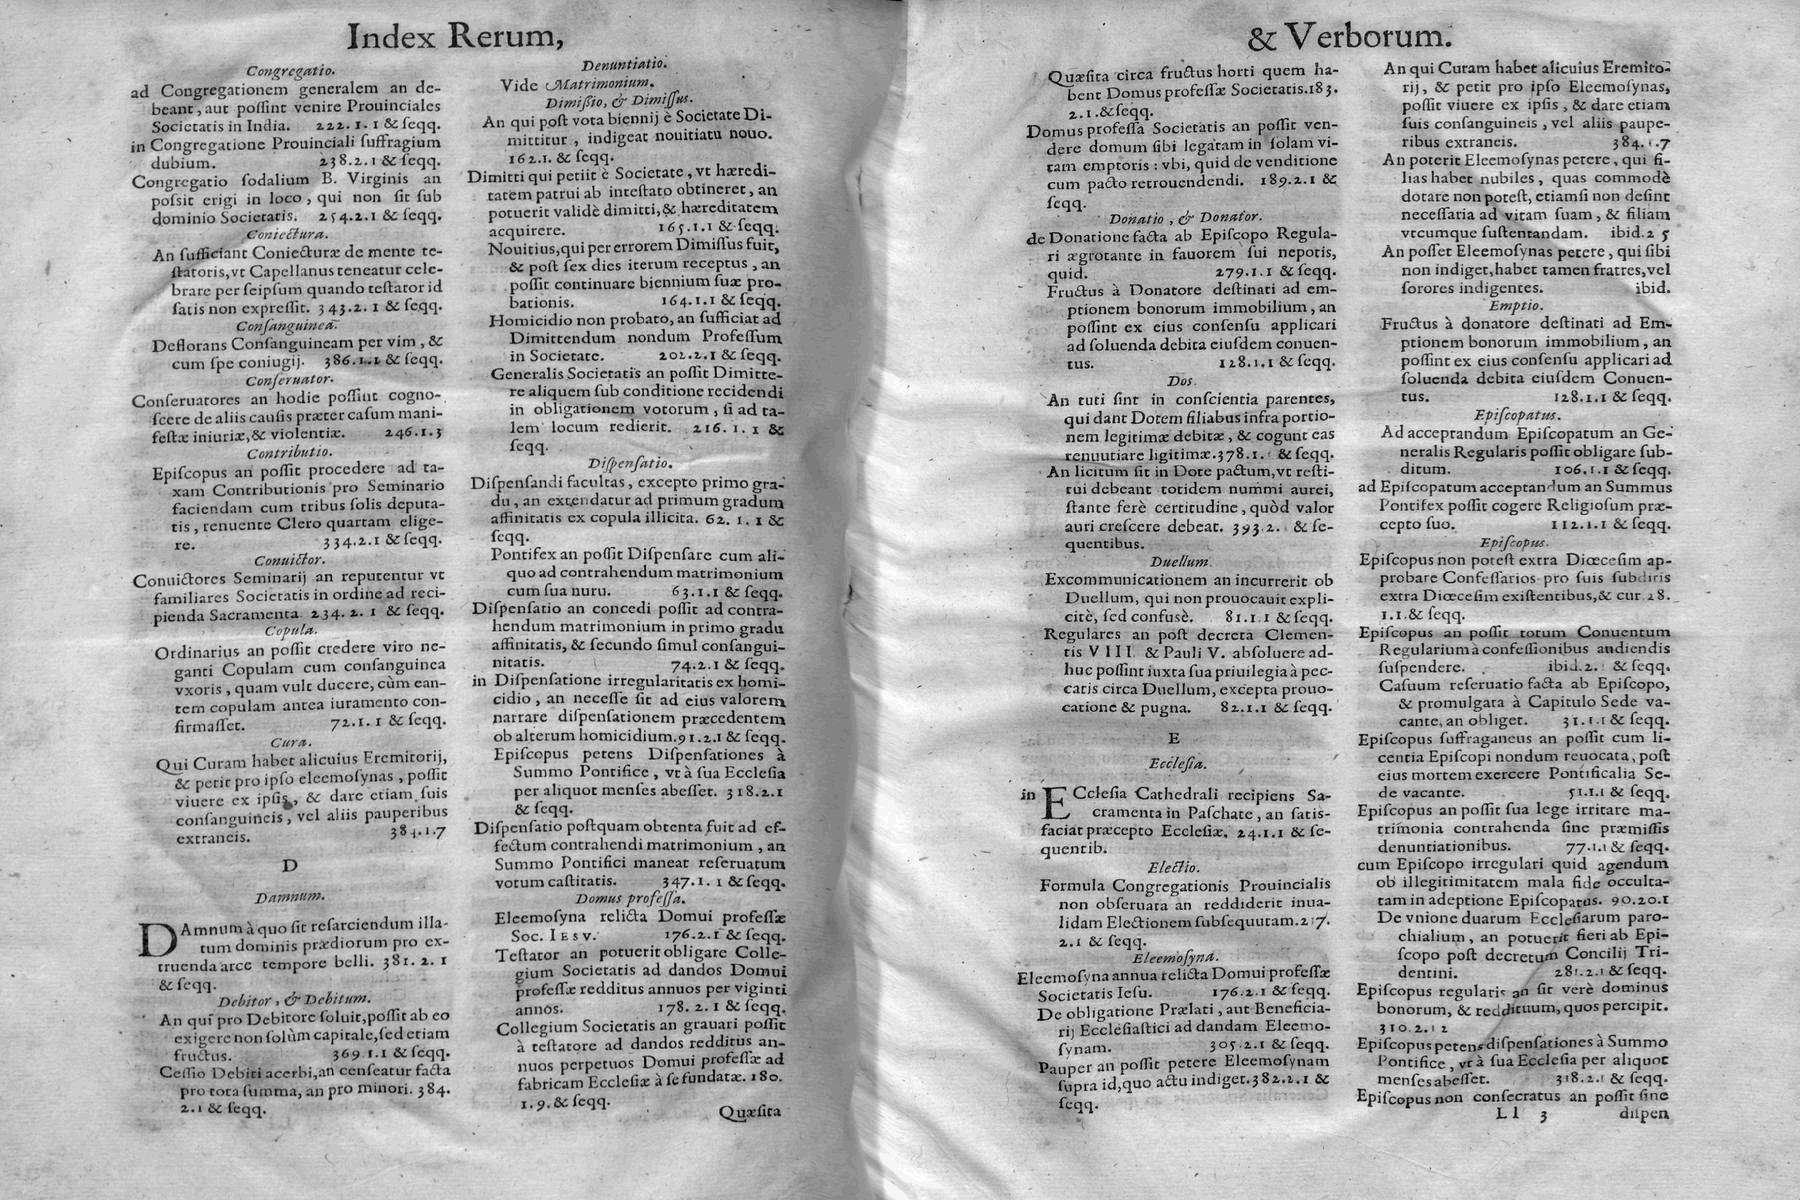 Index Rerum,
Congregatio.
ad Congregationem generalem an de-
beant, aut poſſint venire Prouinciales
Societatis in India. 222.1.1 & ſeqq.
in Congregatione Prouinciali ſuffragium
dubium. 238.2.1 & ſeqq.
Congregatio ſodalium B. Virginis an
poſsit erigi in loco, qui non ſit ſub
dominio Societatis. 254.2.1 & ſeqq.
Coniectura.
An ſufficiant Coniecturæ de mente te-
ſtatoris, vt Capellanus teneatur cele-
brare per ſeipſum quando teſtator id
ſatis non expreſſit. 343.2.1 & ſeqq.
Conſanguinea.
Deflorans Conſanguineam per vim, &
cum ſpe coniugij. 386.1.1 & ſeqq.
Conſeruator.
Conſeruatores an hodie poſſint cogno-
ſcere de aliis cauſis præter caſum mani-
feſtæ iniuriæ, & violentiæ. 246.1.3
Contributio.
Epiſcopus an poſſit procedere ad ta-
xam Contributionis pro Seminario
faciendam cum tribus ſolis deputa-
tis, renuente Clero quartam elige-
re. 334.2.1 & ſeqq.
Conuictor.
Conuictores Seminarij an reputentur vt
familiares Societatis in ordine ad reci-
pienda Sacramenta. 234.2.1 & ſeqq.
Copula.
Ordinarius an poſſit credere viro ne-
ganti Copulam cum conſanguinea
vxoris, quam vult ducere, cùm ean-
tem copulam antea iuramento con-
firmaſſet. 72.1.1 & ſeqq.
Cura.
Qui Curam habet alicuius Eremitorij,
& petit pro ipſo eleemoſynas, poſſit
viuere ex ipſis, & dare etiam ſuis
conſanguineis, vel aliis pauperibus
extraneis. 384.1.7
D
Damnum.
DAmnum à quo ſit reſarciendum illa-
tum dominis prædiorum pro ex-
truenda arce tempore belli. 381.2.1
& ſeqq.
Debitor, & Debitum.
An qui pro Debitore ſoluit, poſſit ab eo
exigere non ſolùm capitale, ſed etiam
fructus. 369.1.1 & ſeqq.
Ceſſio Debiti acerbi, an cenſeatur facta
pro tota ſumma, an pro minori. 384.
2.1 & ſeqq.
Denuntiatio.
Vide Matrimonium.
Dimiſsio, & Dimiſſus.
An qui poſt vota biennij è Societate Di-
mittitur, indigeat nouitiatu nouo.
162.1. & ſeqq.
Dimitti qui petiit è Societate, vt hæredi-
tatem patrui ab inteſtato obtineret, an
potuerit validè dimitti, & hæreditatem
acquirere. 165.1.1 & ſeqq.
Nouitius, qui per errorem Dimiſſus fuit,
& poſt ſex dies iterum receptus, an
poſſit continuare biennium ſuæ pro-
bationis. 164.1.1 & ſeqq.
Homicidio non probato, an ſufficiat ad
Dimittendum nondum Profeſſum
in Societate. 202.2.1 & ſeqq.
Generalis Societatis an poſſit Dimitte-
re aliquem ſub conditione recidendi
in obligationem votorum, ſi ad ta-
lem locum redierit. 216.1.1 &
ſeqq.
Diſpenſatio.
Diſpenſandi facultas, excepto primo gra-
du, an extendatur ad primum gradum
affinitatis ex copula illicita. 62.1.1 &
ſeqq.
Pontifex an poſſit Diſpenſare cum ali-
quo ad contrahendum matrimonium
cum ſua nuru. 63.1.1 & ſeqq.
Diſpenſatio an concedi poſſit ad contra-
hendum matrimonium in primo gradu
affinitatis, & ſecundo ſimul conſangui-
nitatis. 74.2.1 & ſeqq.
in Diſpenſatione irregularitatis ex homi-
cidio, an neceſſe ſit ad eius valorem
narrare diſpenſationem præcedentem
ob alterum homicidium. 91.2.1 & ſeqq.
Epiſcopus petens Diſpenſationes à
Summo Pontifice, vt à ſua Eccleſia
per aliquot menſes abeſſet. 318.2.1
& ſeqq.
Diſpenſatio poſtquam obtenta fuit ad ef-
fectum contrahendi matrimonium, an
Summo Pontifici maneat reſeruatum
votum caſtitatis. 347.1.1 & ſeqq.
Domus profeſſa.
Eleemoſyna relicta Domui profeſſæ
Soc. IESV. 176.2.1 & ſeqq.
Teſtator an potuerit obligare Colle-
gium Societatis ad dandos Domui
profeſſæ redditus annuos per viginti
annos. 178.2.1 & ſeqq.
Collegium Societatis an grauari poſſit
à teſtatore ad dandos redditus an-
nuos perpetuos Domui profeſſæ ad
fabricam Eccleſiæ à ſe fundatæ. 180.
1.9. & ſeqq.
Quæſita
& Verborum.
Quæſita circa fructus horti quem ha-
bent Domus profeſſæ Societatis. 183.
2.1. & ſeqq.
Domus profeſſa Societatis an poſſit ven-
dere domum ſibi legatam in ſolam vi-
tam emptoris: vbi, quid de venditione
cum pacto retrouendendi. 189.2.1 &
ſeqq.
Donatio, & Donator.
de Donatione facta ab Epiſcopo Regula-
ri ægrotante in fauorem ſui nepotis,
quid. 279.1.1 & ſeqq.
Fructus à Donatore deſtinati ad em-
ptionem bonorum immobilium, an
poſſint ex eius conſenſu applicari
ad ſoluenda debita eiuſdem conuen-
tus. 128.1.1 & ſeqq.
Dos.
An tuti ſint in conſcientia parentes,
qui dant Dotem filiabus infra portio-
nem legitimæ debitæ, & cogunt eas
renuutiare ligitimæ. 378.1. & ſeqq.
An licitum ſit in Dote pactum, vt reſti-
tui debeant totidem nummi aurei,
ſtante ferè certitudine, quòd valor
auri creſcere debeat. 393.2. & ſe-
quentibus.
Duellum.
Excommunicationem an incurrerit ob
Duellum, qui non prouocauit expli-
citè, ſed confusè. 81.1.1 & ſeqq.
Regulares an poſt decreta Clemen-
tis VIII. & Pauli V. abſoluere ad-
huc poſſint iuxta ſua priuilegia à pec-
catis circa Duellum, excepta prouo-
catione & pugna. 82.1.1 & ſeqq.
E
Eccleſia.
in ECcleſia Cathedrali recipiens Sa-
cramenta in Paſchate, an ſatis-
faciat præcepto Eccleſiæ. 24.1.1 & ſe-
quentib.
Electio.
Formula Congregationis Prouincialis
non obſeruata an reddiderit inua-
lidam Electionem ſubſequutam.
2.1 & ſeqq.
Eleemoſyna.
Eleemoſyna annua relicta Domui profeſſæ
Societatis Ieſu. 176.2.1 & ſeqq.
De obligatione Prælati, aut Beneficia-
rij Eccleſiaſtici ad dandam Eleemo-
ſynam. 305.2.1 & ſeqq.
Pauper an poſſit petere Eleemoſynam
ſupra id, quo actu indiget. 382.2.1 &
ſeqq.
An qui Curam habet alicuius Eremito-
rij, & petit pro ipſo Eleemoſynas,
poſſit viuere ex ipſis, & dare etiam
ſuis conſanguineis, vel aliis paupe-
ribus extraneis. 384. .7
An poterit Eleemoſynas petere, qui fi-
lias habet nubiles, quas commodè
dotare non poteſt, etiamſi non deſint
neceſſaria ad vitam ſuam, & filiam
vtcumque ſuſtentandam. ibid.2 5
An poſſet Eleemoſynas petere, qui ſibi
non indiget, habet tamen fratres, vel
ſorores indigentes. ibid.
Emptio.
Fructus à donatore deſtinati ad Em-
ptionem bonorum immobilium, an
poſſint ex eius conſenſu applicari ad
ſoluenda debita eiuſdem Conuen-
tus. 128.1.1 & ſeqq.
Epiſcopatus.
Ad acceptandum Epiſcopatum an Ge-
neralis Regularis poſſit obligare ſub-
ditum. 106.1.1 & ſeqq.
ad Epiſcopatum acceptandum an Summus
Pontifex poſſit cogere Religioſum præ-
cepto ſuo. 112.1.1 & ſeqq.
Epiſcopus.
Epiſcopus non poteſt extra Diœceſim ap-
probare Confeſſarios pro ſuis ſubditis
extra Diœceſim exiſtentibus, & cur 28.
1.1. & ſeqq.
Epiſcopus an poſſit totum Conuentum
Regularium à confeſſionibus audiendis
ſuſpendere. ibid.2. & ſeqq.
Caſuum reſeruatio facta ab Epiſcopo,
& promulgata à Capitulo Sede va-
cante, an obliget. 31.1.1 & ſeqq.
Epiſcopus ſuffraganeus an poſſit cum li-
centia Epiſcopi nondum reuocata, poſt
eius mortem exercere Pontificalia Se-
de vacante. 51.1.1 & ſeqq.
Epiſcopus an poſſit ſua lege irritare ma-
trimonia contrahenda ſine præmiſſis
denuntiationibus. 77.1.1 & ſeqq.
cum Epiſcopo irregulari quid agendum
ob illegitimitatem mala fide occulta-
tam in adeptione Epiſcopatus. 90.20.1
De vnione duarum Eccleſiarum paro-
chialium, an potuerit fieri ab Epi-
ſcopo poſt decretum Concilij Tri-
dentini. 281.2.1 & ſeqq.
Epiſcopus regularis an ſit verè dominus
bonorum, & reddituum, quos percipit.
310.2.12
Epiſcopus petens diſpenſationes à Summo
Pontifice, vt à ſua Eccleſia per aliquot
menſes abeſſet. 318.2.1 & ſeqq.
Epiſcopus non conſecratus an poſſit ſine
Ll 3 diſpen